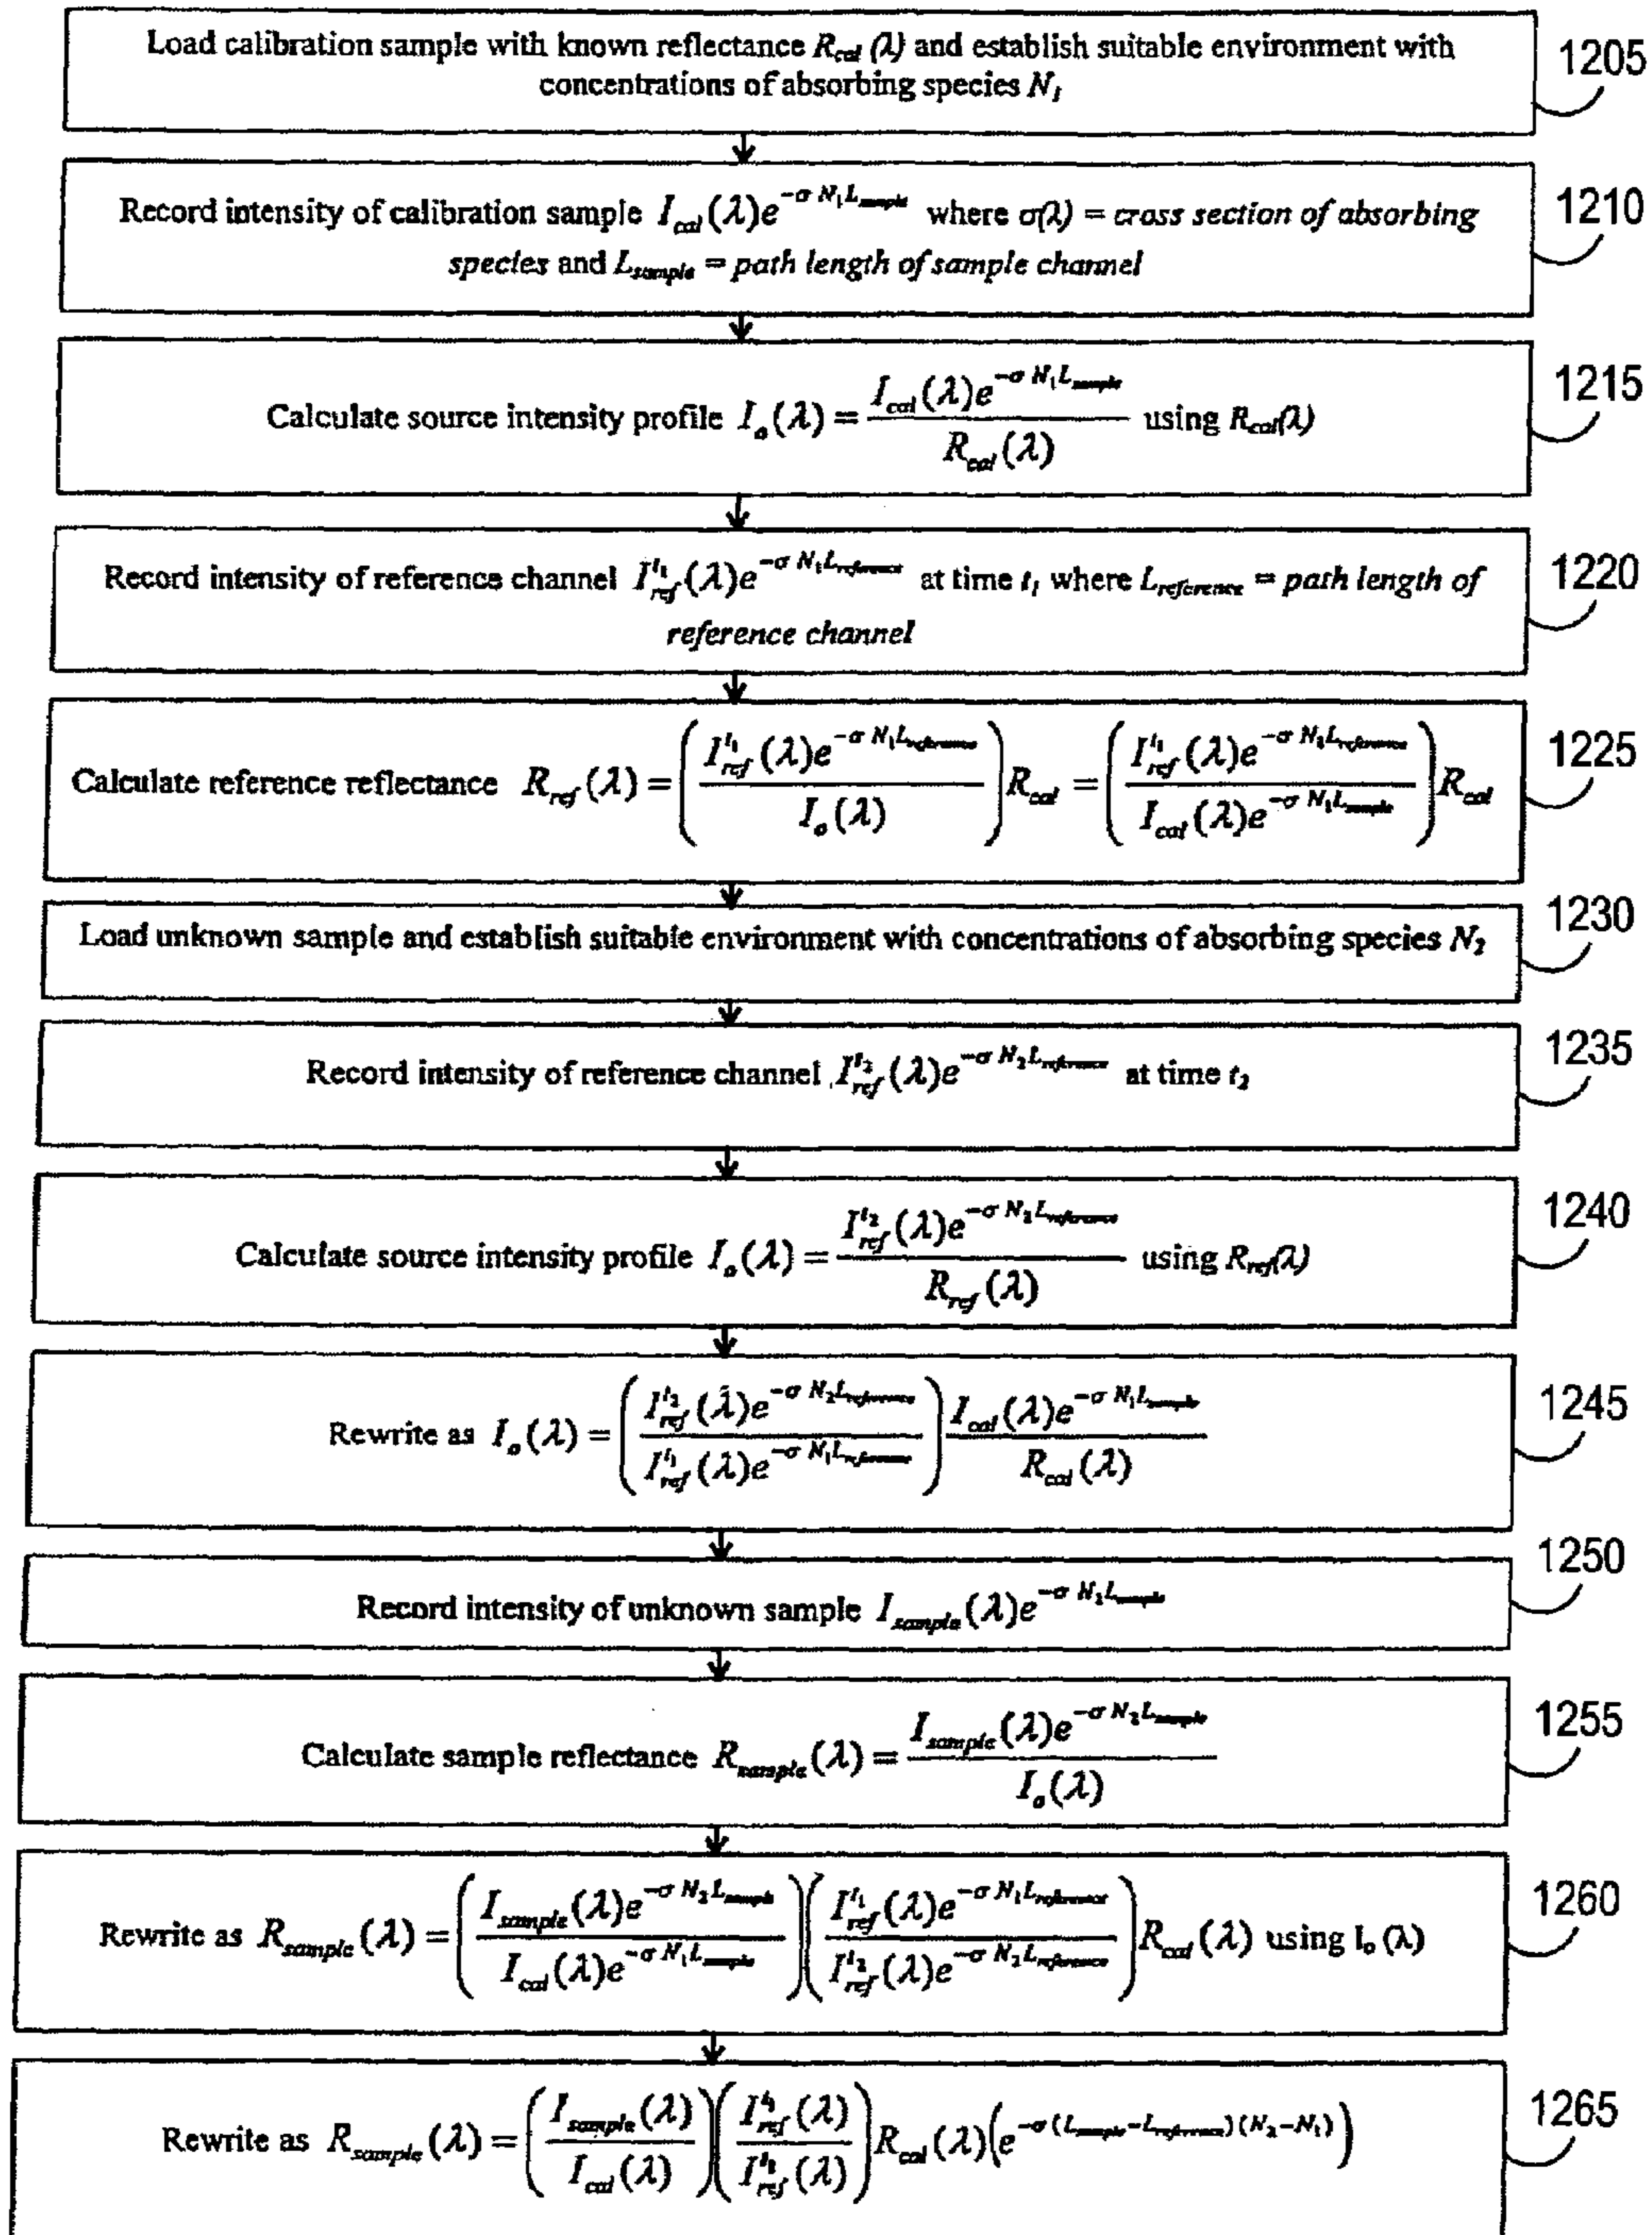 Load calibration sample with known reflectance R_cal (λ) and establish suitable environment with
concentrations of absorbing species N_1
1205
Record intensity of calibration sample I_cal(λ)e^{-σ N_1 L_sample} where σ(λ) = cross section of absorbing
species and L_sample = path length of sample channel
1210
Calculate source intensity profile I_o(λ) = \frac{I_cal(λ)e^{-σ N_1 L_sample}}{R_cal(λ)} using R_cal(λ)
1215
Record intensity of reference channel I_ref^{t_1}(λ)e^{-σ N_1 L_reference} at time t_1 where L_reference = path length of
reference channel
1220
Calculate reference reflectance R_ref(λ) = (\frac{I_ref^{t_1}(λ)e^{-σ N_1 L_reference}}{I_o(λ)}) R_cal = (\frac{I_ref^{t_1}(λ)e^{-σ N_1 L_reference}}{I_cal(λ)e^{-σ N_1 L_sample}}) R_cal
1225
Load unknown sample and establish suitable environment with concentrations of absorbing species N_2
1230
Record intensity of reference channel I_ref^{t_2}(λ)e^{-σ N_2 L_reference} at time t_2
1235
Calculate source intensity profile I_o(λ) = \frac{I_ref^{t_2}(λ)e^{-σ N_2 L_reference}}{R_ref(λ)} using R_ref(λ)
1240
Rewrite as I_o(λ) = (\frac{I_ref^{t_2}(λ)e^{-σ N_2 L_reference}}{I_ref^{t_1}(λ)e^{-σ N_1 L_reference}}) \frac{I_cal(λ)e^{-σ N_1 L_sample}}{R_cal(λ)}
1245
Record intensity of unknown sample I_sample(λ)e^{-σ N_2 L_sample}
1250
Calculate sample reflectance R_sample(λ) = \frac{I_sample(λ)e^{-σ N_2 L_sample}}{I_o(λ)}
1255
Rewrite as R_sample(λ) = (\frac{I_sample(λ)e^{-σ N_2 L_sample}}{I_cal(λ)e^{-σ N_1 L_sample}})(\frac{I_ref^{t_1}(λ)e^{-σ N_1 L_reference}}{I_ref^{t_2}(λ)e^{-σ N_2 L_reference}}) R_cal(λ) using I_o (λ)
1260
Rewrite as R_sample(λ) = (\frac{I_sample(λ)}{I_cal(λ)})(\frac{I_ref^{t_1}(λ)}{I_ref^{t_2}(λ)}) R_cal(λ)(e^{-σ (L_sample-L_reference)(N_2-N_1)})
1265